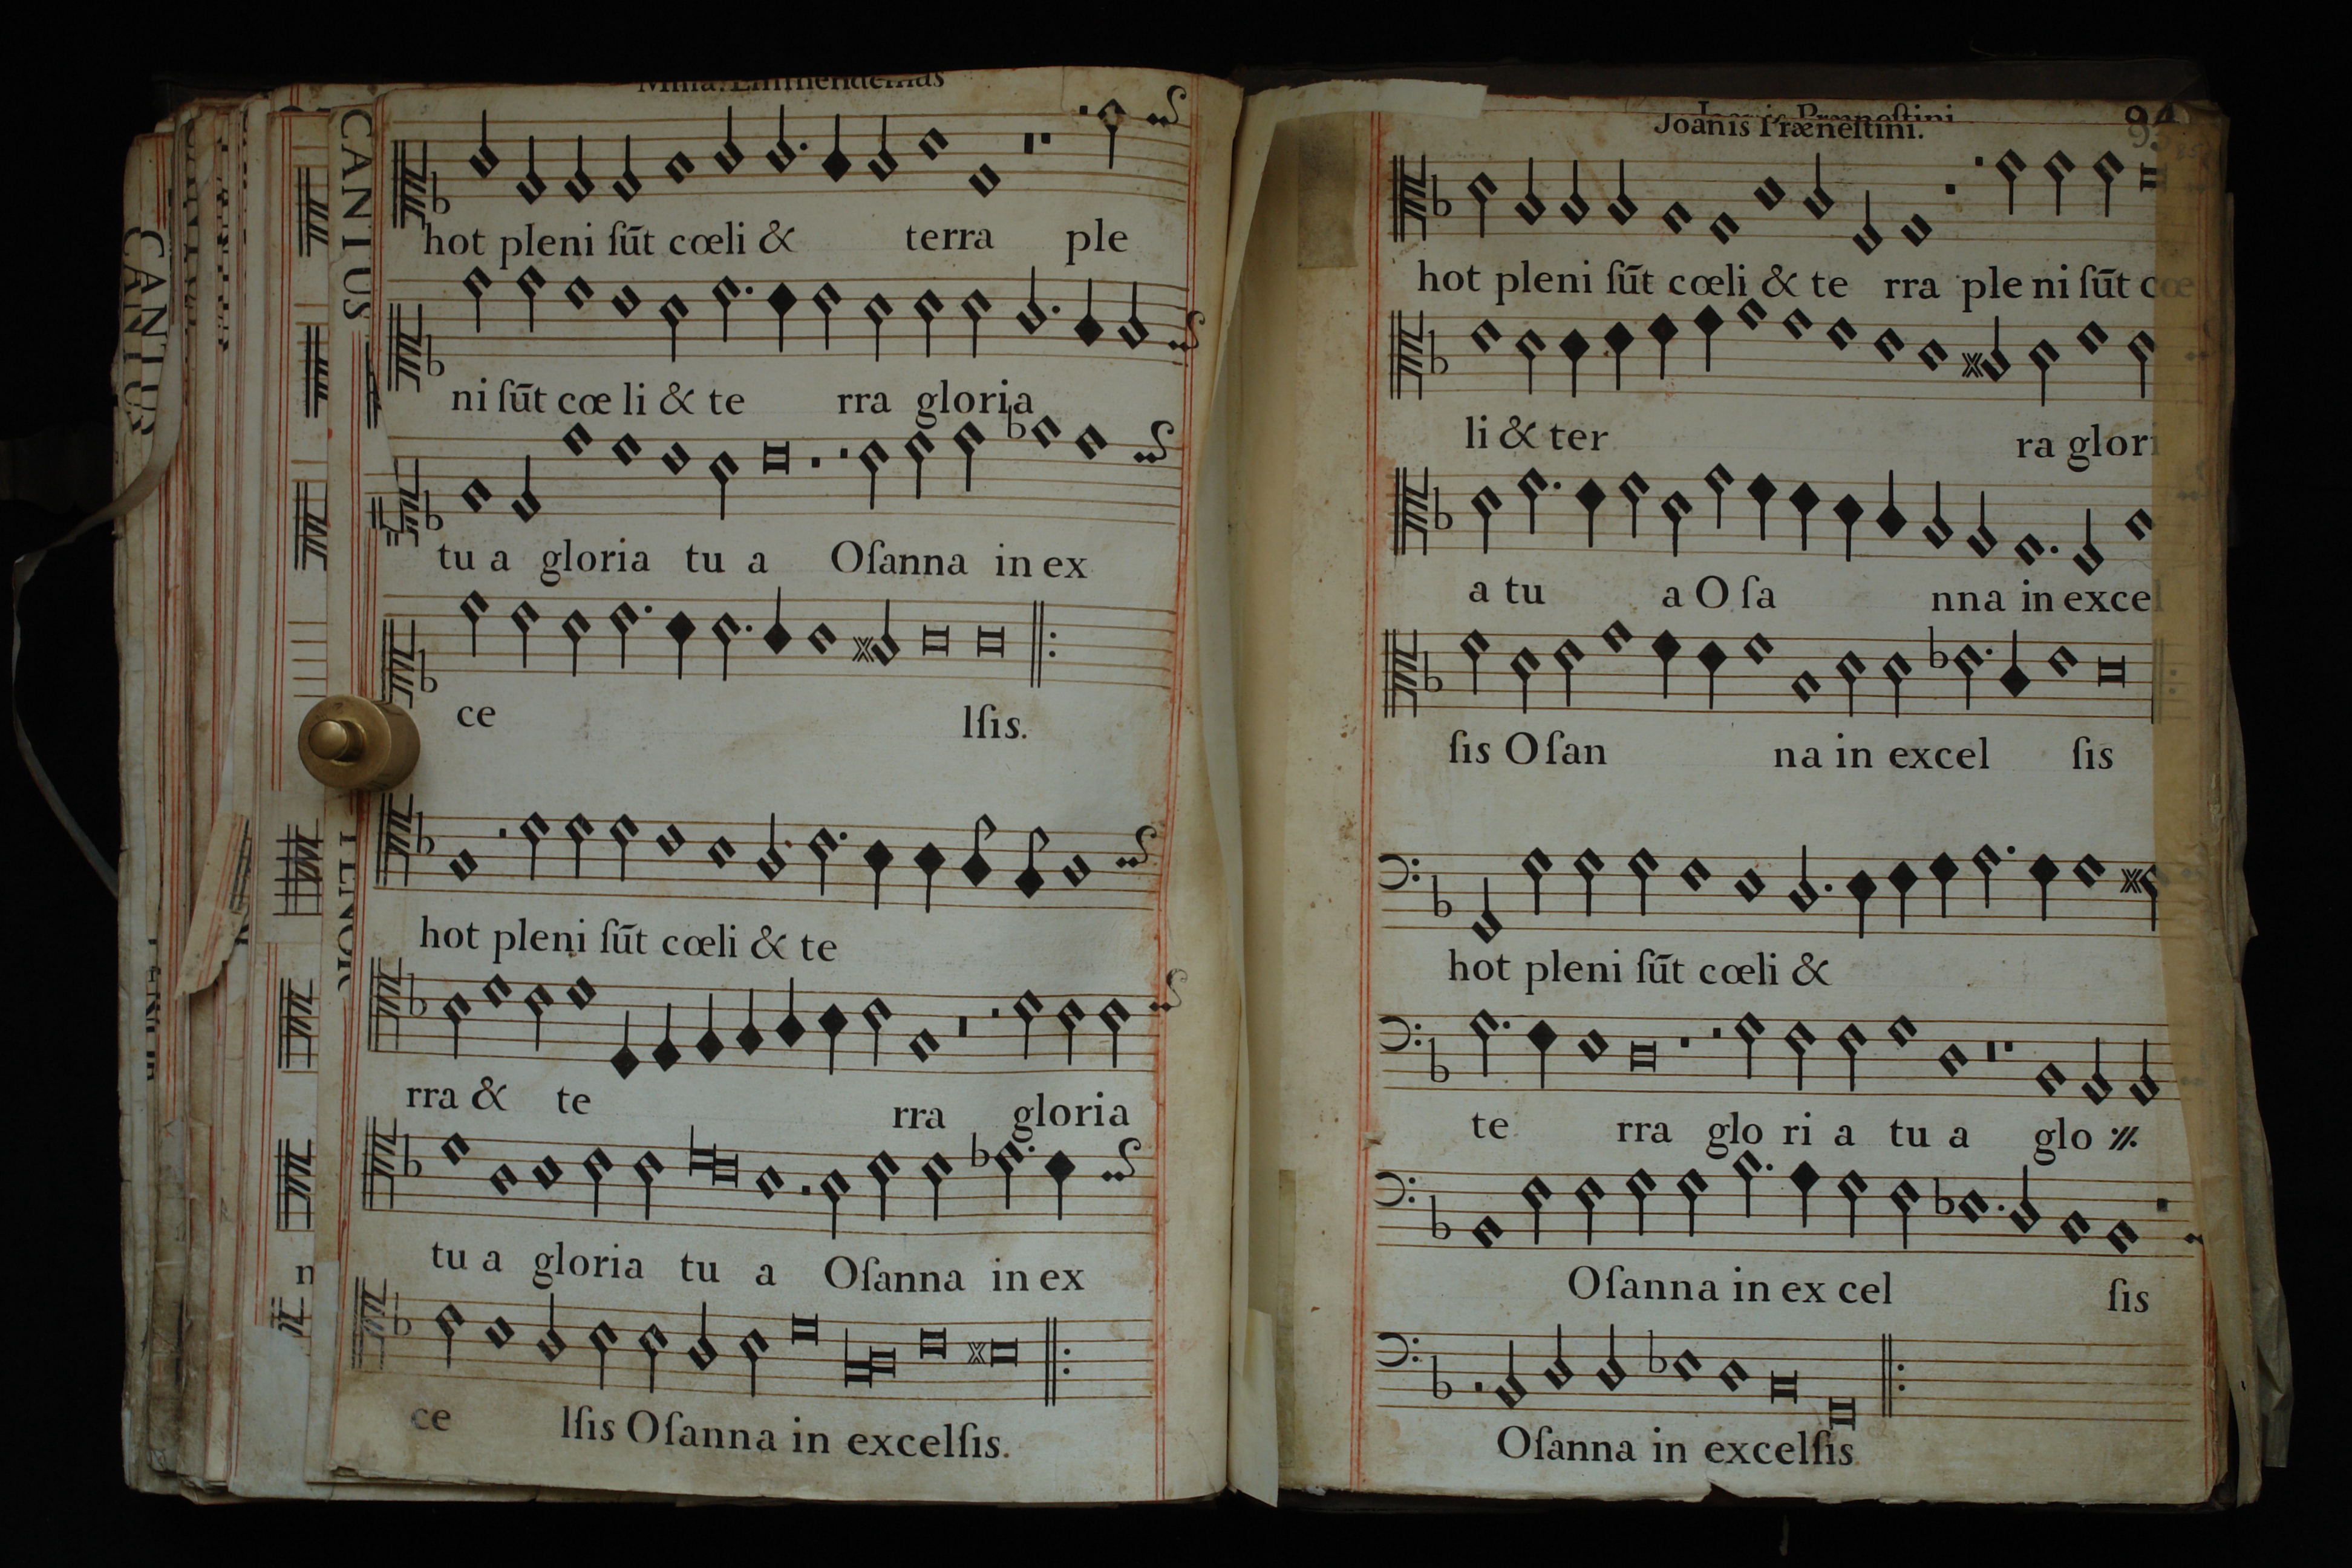 Missa. Emmendemus
CANTUS
CANTUS
CANTUS
hot pleni ſūt cœli & terra ple
ni ſūt cœ li & te rra gloria
tu a gloria tu a Oſanna in ex
ce lſis.
TENOR
hot pleni ſūt cœli & te
rra & te rra gloria
tu a gloria tu a Oſanna in ex
ce lſis Oſanna in excelſis.
Joanis Præneſtini
Joanis Præneſtini.
hot pleni ſūt cœli & te rra ple ni ſūt cœ
li & ter ra glori
a tu a O ſa nna in excel
ſis O ſan na in excel ſis
hot pleni ſūt cœli &
te rra glo ri a tu a glo
Oſanna in ex cel ſis
Oſanna in excelſis